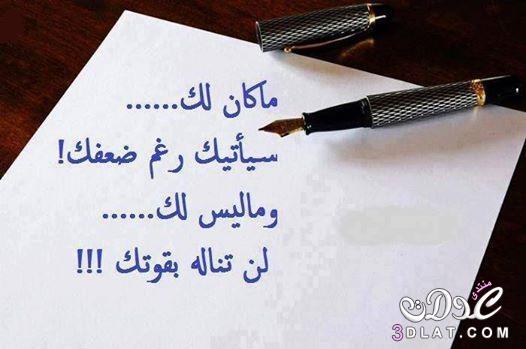 ماكان لك......
سيأتيك رغم ضعفك!
وماليس لك......
لن تناله بقوتك !!!
منتدى
عدلات
3DLAT.COM